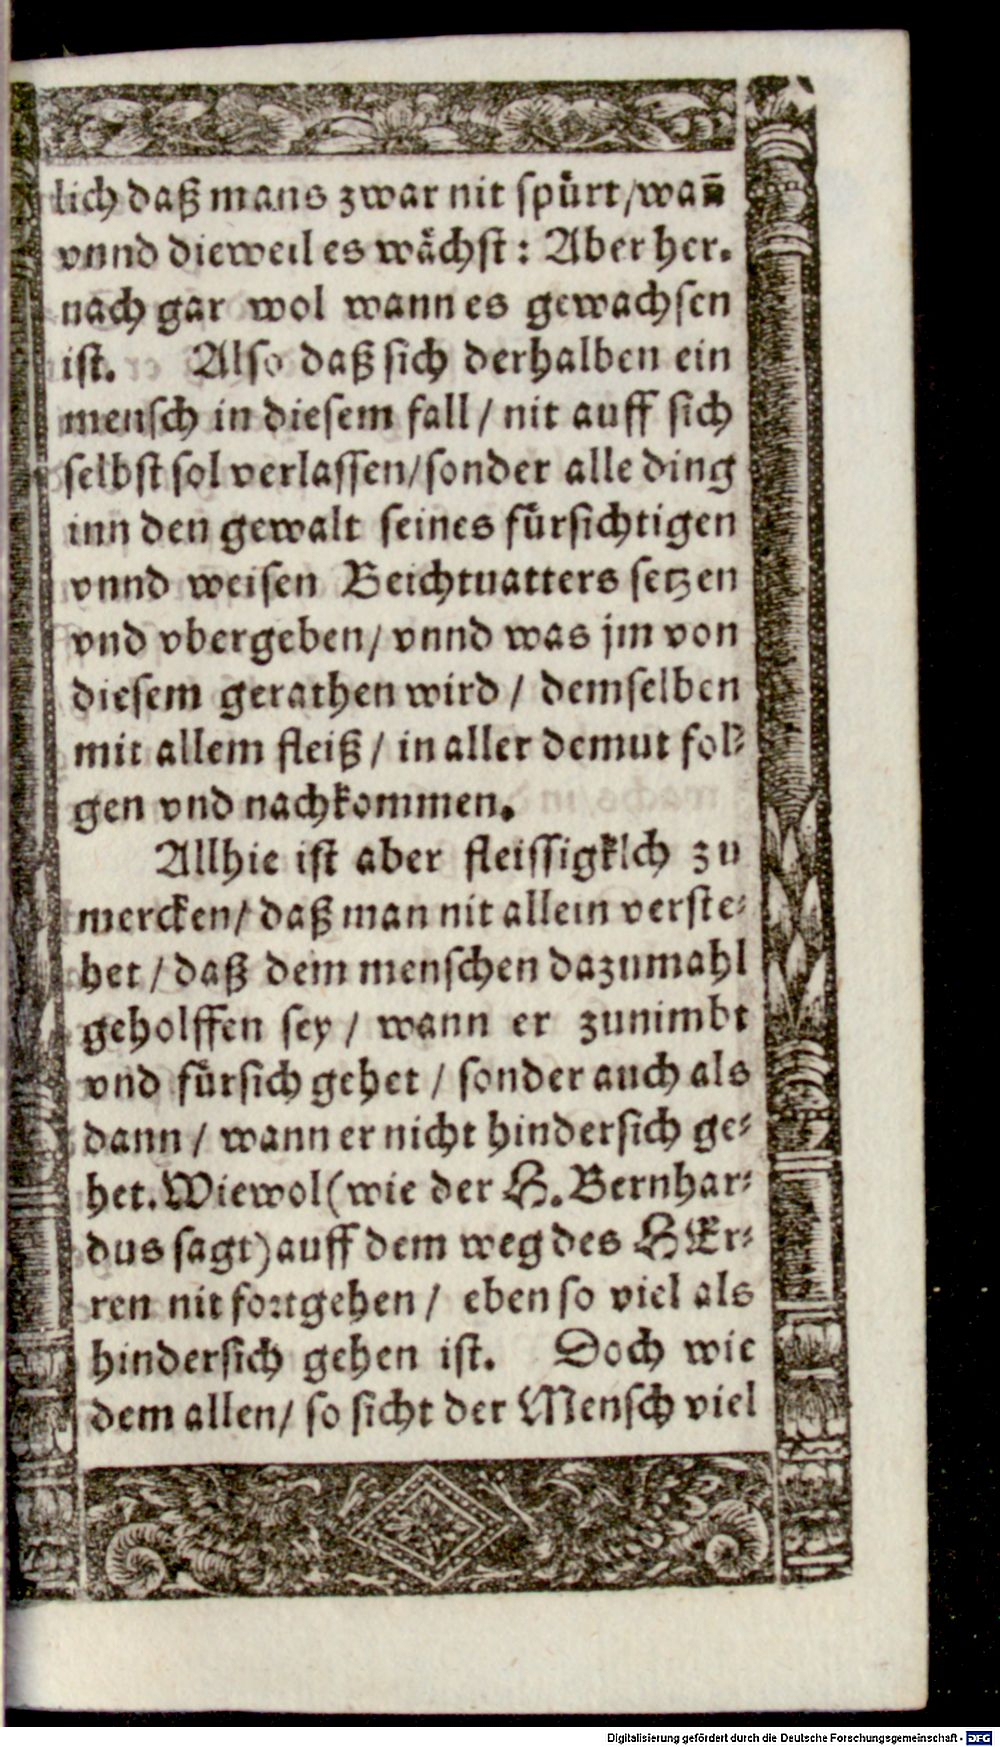 lich daß mans zwar nit spürt/wan̄
vnnd dieweil es wächst: Aber her.
nach gar wol wann es gewachsen
ist. Also daß sich derhalben ein
mensch in diesem fall / nit auff sich
selbst sol verlassen/sonder alle ding
inn den gewalt seines fürsichtigen
vnnd weisen Beichtuatters setzen
vnd vbergeben/ vnnd was jm von
diesem gerathen wird / demselben
mit allem fleiß / in aller demut fol⸗
gen vnd nachkommen.
Allhie ist aber fleissigklch zu
mercken/ daß man nit allein verste⸗
het / daß dem menschen dazumahl
geholffen sey / wann er zunimbt
vnd fürsich gehet / sonder auch als
dann / wann er nicht hindersich ge⸗
het. Wiewol (wie der H. Bernhar⸗
dus sagt) auff dem weg des HEr⸗
ren nit fortgehen / eben so viel als
hindersich gehen ist. Doch wie
dem allen/ so sicht der Mensch viel
Digitalisierung gefördert durch die Deutsche Forschungsgemeinschaft - DFG